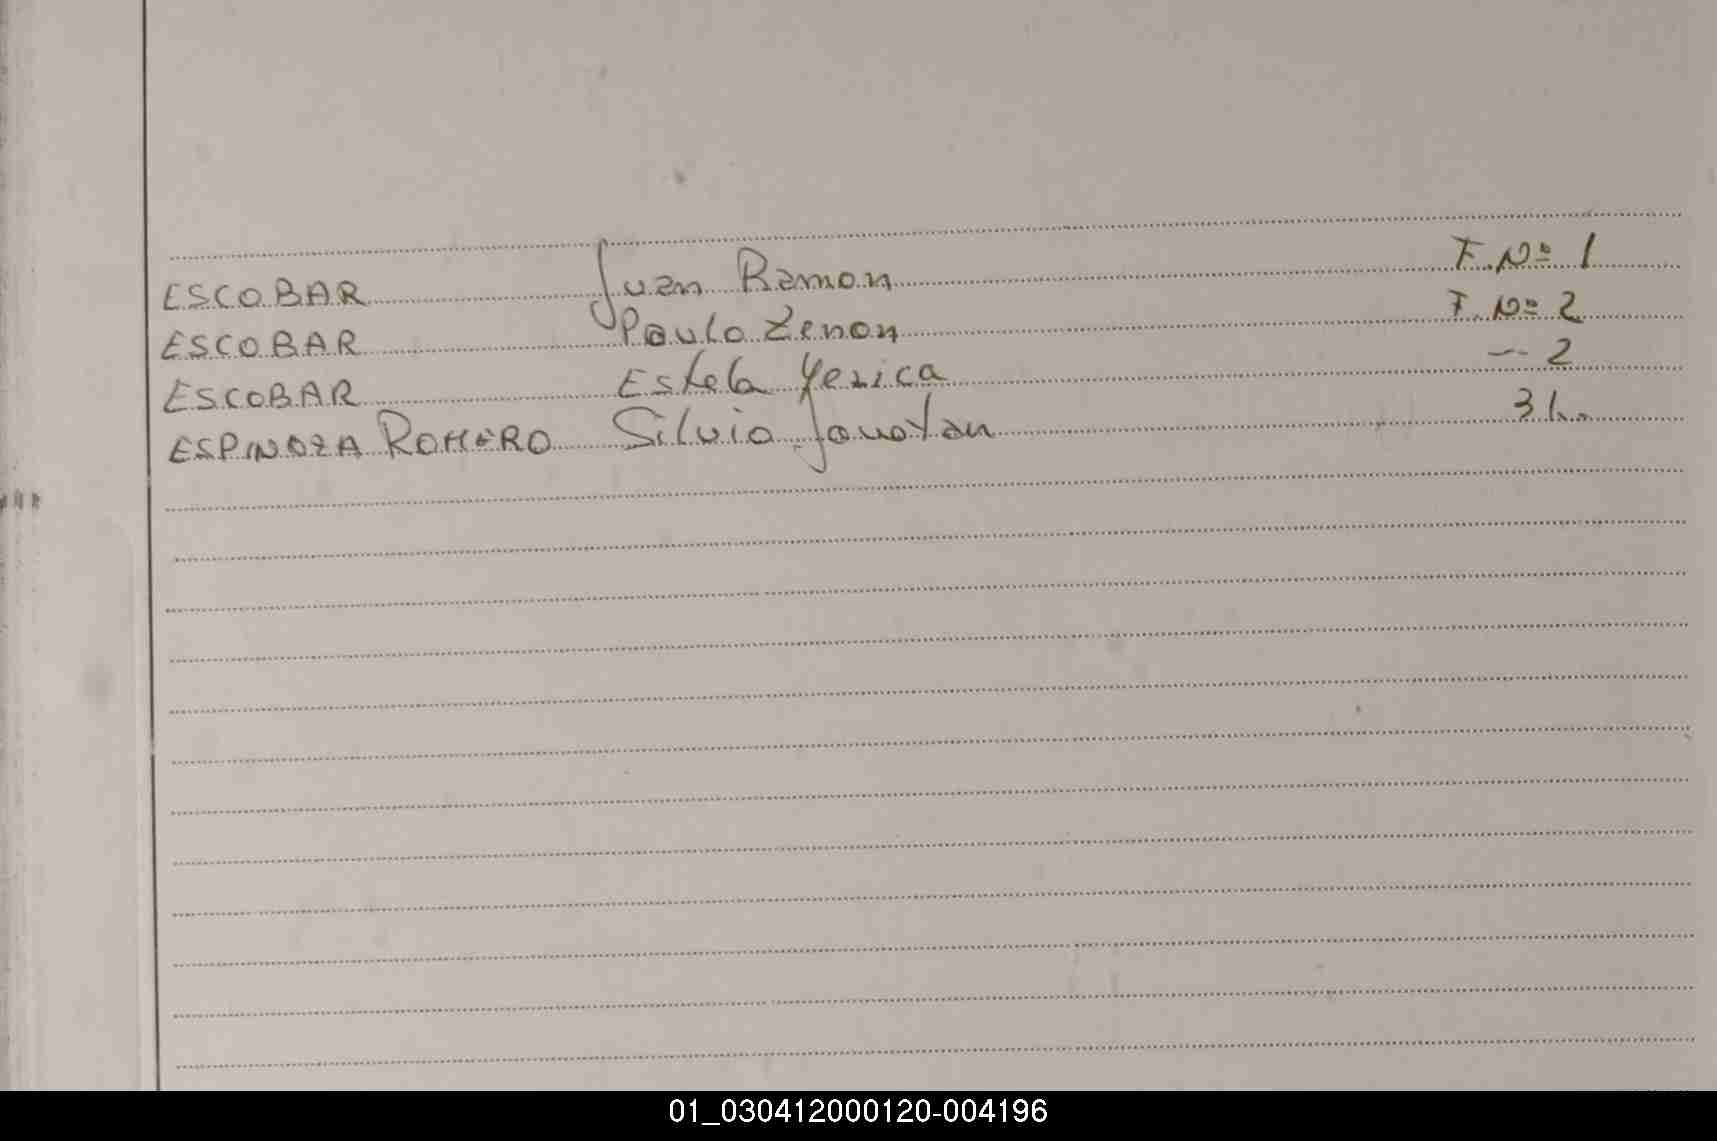 ESCOBAR Juan Ramon F. Nº 1
ESCOBAR Paulo Zenon F. Nº 2
ESCOBAR Estela Yesica — 2
ESPINOZA ROMERO Silvio Jonotan 3
01_030412000120-004196